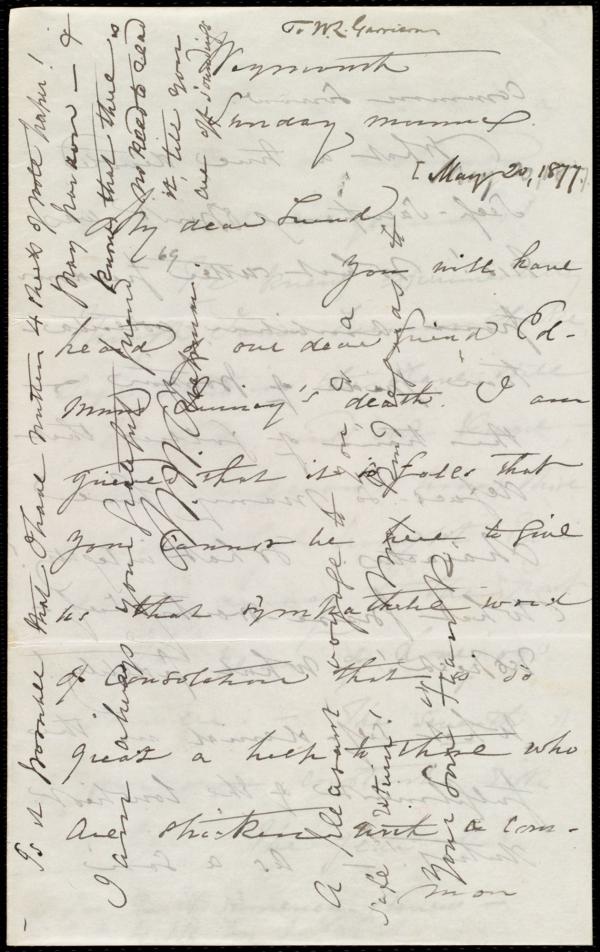 To W. L. Garrison
Weymouth
Sunday
[May 20, 1877.]
My dear Friend
69
You will have
heard our dear friend Ed-
mund Quincy's death. I am
grieved that it so falls that
you cannot be here to give
us that sympathetic word
of consolation that is so
great a help to those who
are stricken with a com-
mon
Is it possible that I have written 4 sheets of note paper!
Pray pardon — &
know that there is
no need to read
it, till you
are off soundings
I am always your grateful friend
M. W. Chapman
A pleasant voyage to you & a
safe return!
your son Frank